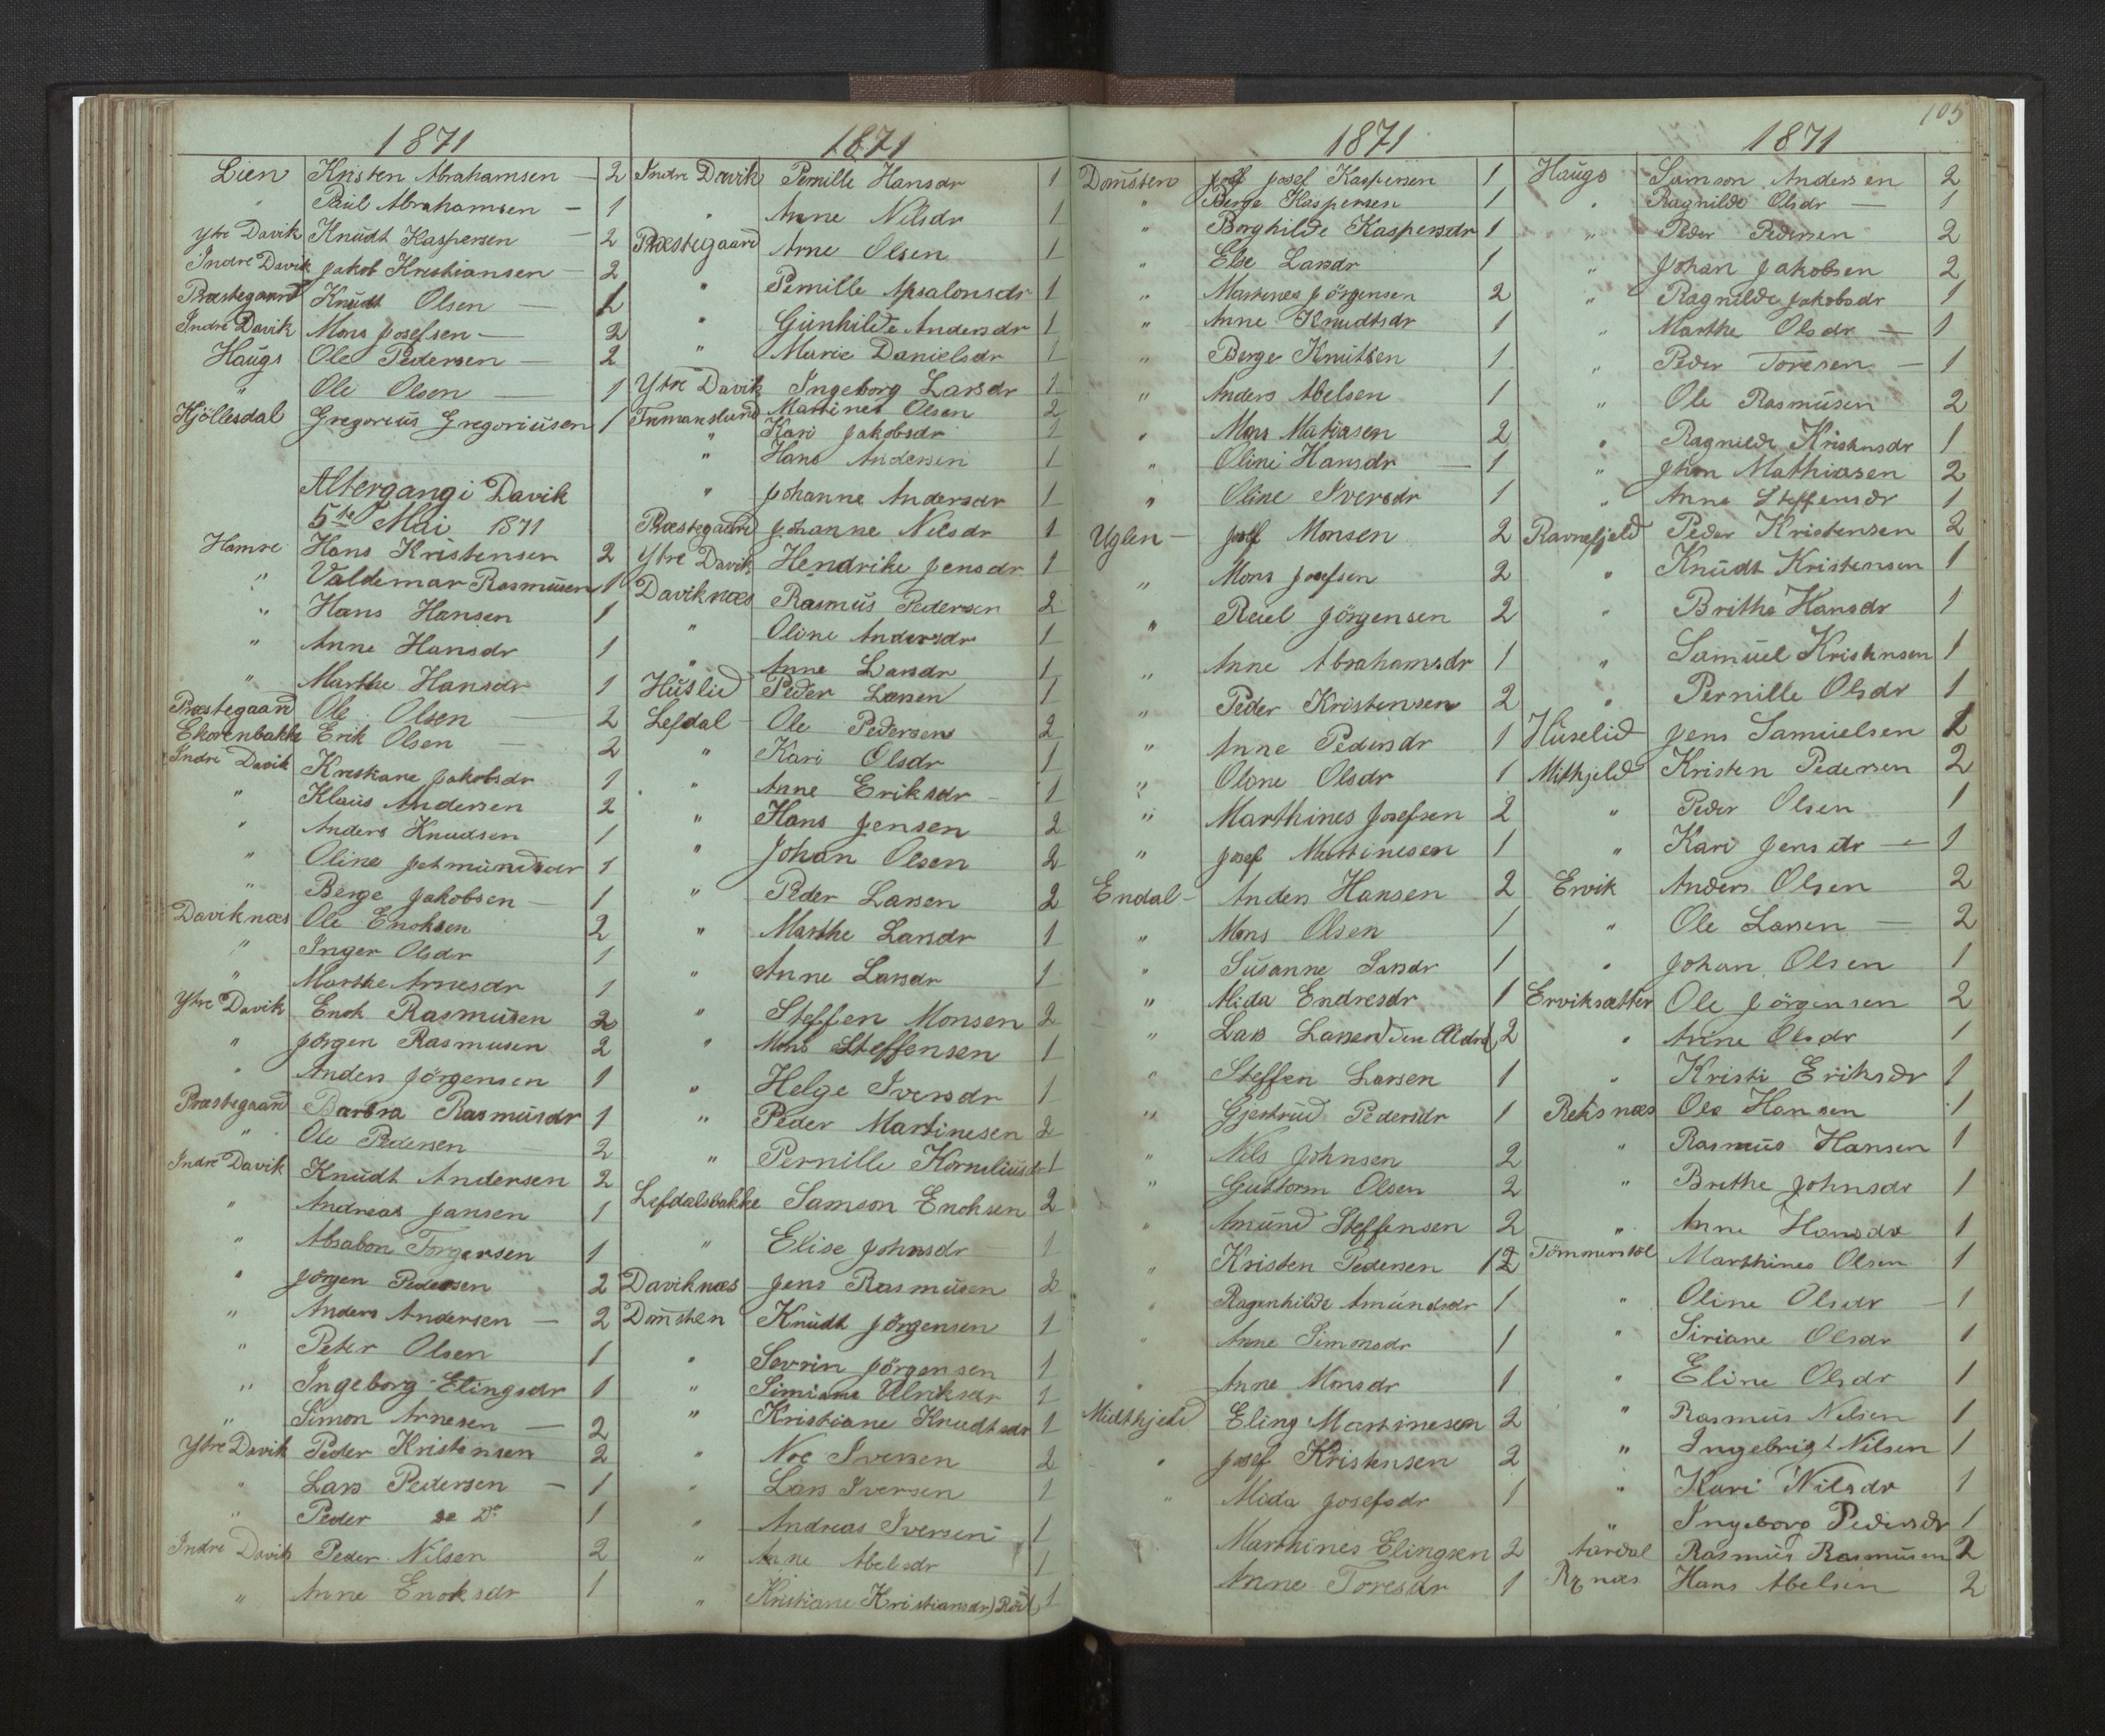 105
1871
Lien Kristen Abrahamsen — 2
" Paul Abrahamsen — 1
Ytre Davik Knudt Kaspersen — 2
Indre Davik Jakob Kristiansen — 2
Præstegaard Knudt Olsen — 2
Indre Davik Mons Josefsen — 2
Haugs Ole Pedersen — 2
" Ole Olsen — 1
Hjöllesdal Gregorius Gregoriusen 1
Altergang i Davik
5te Mai 1871
Hamre Hans Kristensen 2
" Valdemar Rasmusen 1
" Hans Hansen 1
" Anne Hansdr 1
" Marthe Hansdr 1
Præstegaard Ole Olsen — 2
Ekorenbakke Erik Olsen — 2
Indre Davik Kristiane Jakobsdr 1
" Klaus Andersen 2
" Anders Knudsen 1
" Oline Jetmundsdr 1
" Berge Jakobsen — 1
Daviknæs Ole Enoksen 2
" Inger Olsdr 1
" Marthe Arnesdr 1
Ytre Davik Enok Rasmusen 2
" Jörgen Rasmusen 2
" Anders Jörgensen 1
Præstegaard Barbra Rasmusdr 1
" Ole Pedersen 2
Indre Davik Knudt Andersen 2
" Andreas Jansen 1
" Absabon Torgersen 1
" Jörgen Pedersen 2
" Anders Andersen — 2
" Peter Olsen 1
" Ingeborg Elingsdr 1
" Simon Arnesen — 2
Ytre Davik Peder Kristensen 2
" Lars Pedersen — 1
" Peder se Do 1
Indre Davik Peder Nilsen 2
" Anne Enoksdr 1
1871
Indre Davik Pernille Hansdr 1
" Anne Nilsdr 1
Præstegaard Arne Olsen 1
" Pernille Apsalonsdr 1
" Gunhilde Andersdr 1
" Marie Danielsdr 1
Ytre Davik Ingeborg Larsdr 1
Tnmanslund Martines Olsen 2
" Kari Jakobsdr 1
" Hans Andersen 1
" Johanne Andersdr 1
Præstegaard Johanne Nilsdr 1
Ytre Davik Hendrike Jensdr 1
Daviknæs Rasmus Pedersen 2
" Oline Andersdr 1
" Anne Larsdr 1
Huslid Peder Larsen 1
Lefdal — Ole Pedersen 2
" Kari Olsdr 1
" Anne Eriksdr — 1
" Hans Jensen 2
" Johan Olsen 2
" Peder Larsen 2
" Marthe Larsdr 1
" Anne Larsdr 1
" Steffen Monsen 2
" Mons Steffensen 1
" Helge Iversdr 1
" Peder Martinesen 2
" Pernille Korneliusdr 1
Lefdalsbakke Samson Enoksen 2
" Elise Johnsdr 1
Daviknæs Jens Rasmusen 2
Domsten Knudt Jörgensen 1
" Sevrin Jörgensen 1
" Simiane Ulriksdr 1
" Kristiane Knudtsdr 1
" Noe Iversen 2
" Lars Iversen 1
" Andreas Iversen 1
" Anne Abelsdr 1
" Kristiane Kristiansdr) Röil( 1
1871
Domsten Josef Kaspersen 1
" Berge Kaspersen 1
" Borghilde Kaspersdr 1
" Else Larsdr 1
" Martenes Jörgensen 2
" Anne Knudtsdr 1
" Berge Knutsen 1
" Anders Abelsen 1
" Mons Matiasen 2
" Oline Hansdr — 1
" Oline Iversdr 1
Uglen — Josef Monsen 2
" Mons Josefsen 2
" Reiel Jörgensen 2
" Anne Abrahamsdr 1
" Peder Kristensen 2
" Anne Pedersdr 1
" Olone Olsdr 1
" Marthines Josefsen 2
" Josef Martinesen 1
Endal — Anders Hansen 2
" Mons Olsen 1
" Susanne Larsdr 1
" Mida Endresdr 1
" Lars Larsen) den Ældre( 2
" Steffen Larsen 1
" Gjertrud Pedersdr 1
" Nils Johnsen 2
" Guttorm Olsen 2
" Amund Steffensen 2
" Kristen Pedersen 12
" Ragenhilde Amundsdr 1
" Anne Simonsdr 1
" Anne Monsdr 1
Midthjeld Eling Martinesen 2
" Josef Kristensen 2
" Mida Josefsdr 1
Marthines Elingsen 2
Anne Toresdr 1
1871
Haugs Samson Andersen 2
" Ragnilde Olsdr — 1
" Peder Pedersen 2
" Johan Jakobsen 2
" Ragnilde Jakobsdr 1
" Marthe Olsdr — 1
" Peder Toresen — 1
" Ole Rasmusen 2
" Ragnilde Kristensdr 1
" Jhon Mathiasen 2
" Anne Steffensdr 1
Ravnefjeld Peder Kristensen 2
" Knudt Kristensen 1
" Brithe Hansdr 1
" Samuel Kristensen 1
" Pernille Olsdr 1
Huselid Jens Samuelsen 2
Mithjeld Kristen Pedersen 2
" Peder Olsen 1
" Kari Jensdr — 1
Ervik Anders Olsen 2
" Ole Larsen — 2
" Johan Olsen 1
Erviksætter Ole Jörgensen 2
" Anne Olsdr 1
" Kristi Eriksdr 1
Reksnæs Ole Hansen 1
" Rasmus Hansen 1
" Brethe Johnsdr 1
" Anne Hansdr 1
Tömmerstöl Marthines Olsen 1
" Oline Olsdr — 1
" Siriane Olsdr 1
" Eline Olsdr 1
" Rasmus Nilsen 1
" Ingebrigt Nilsen 1
" Kari Nilsdr 1
" Ingeborg Pedersdr 1
Aardal Rasmus Rasmusen 2
Rznæs Hans Abelsen 2